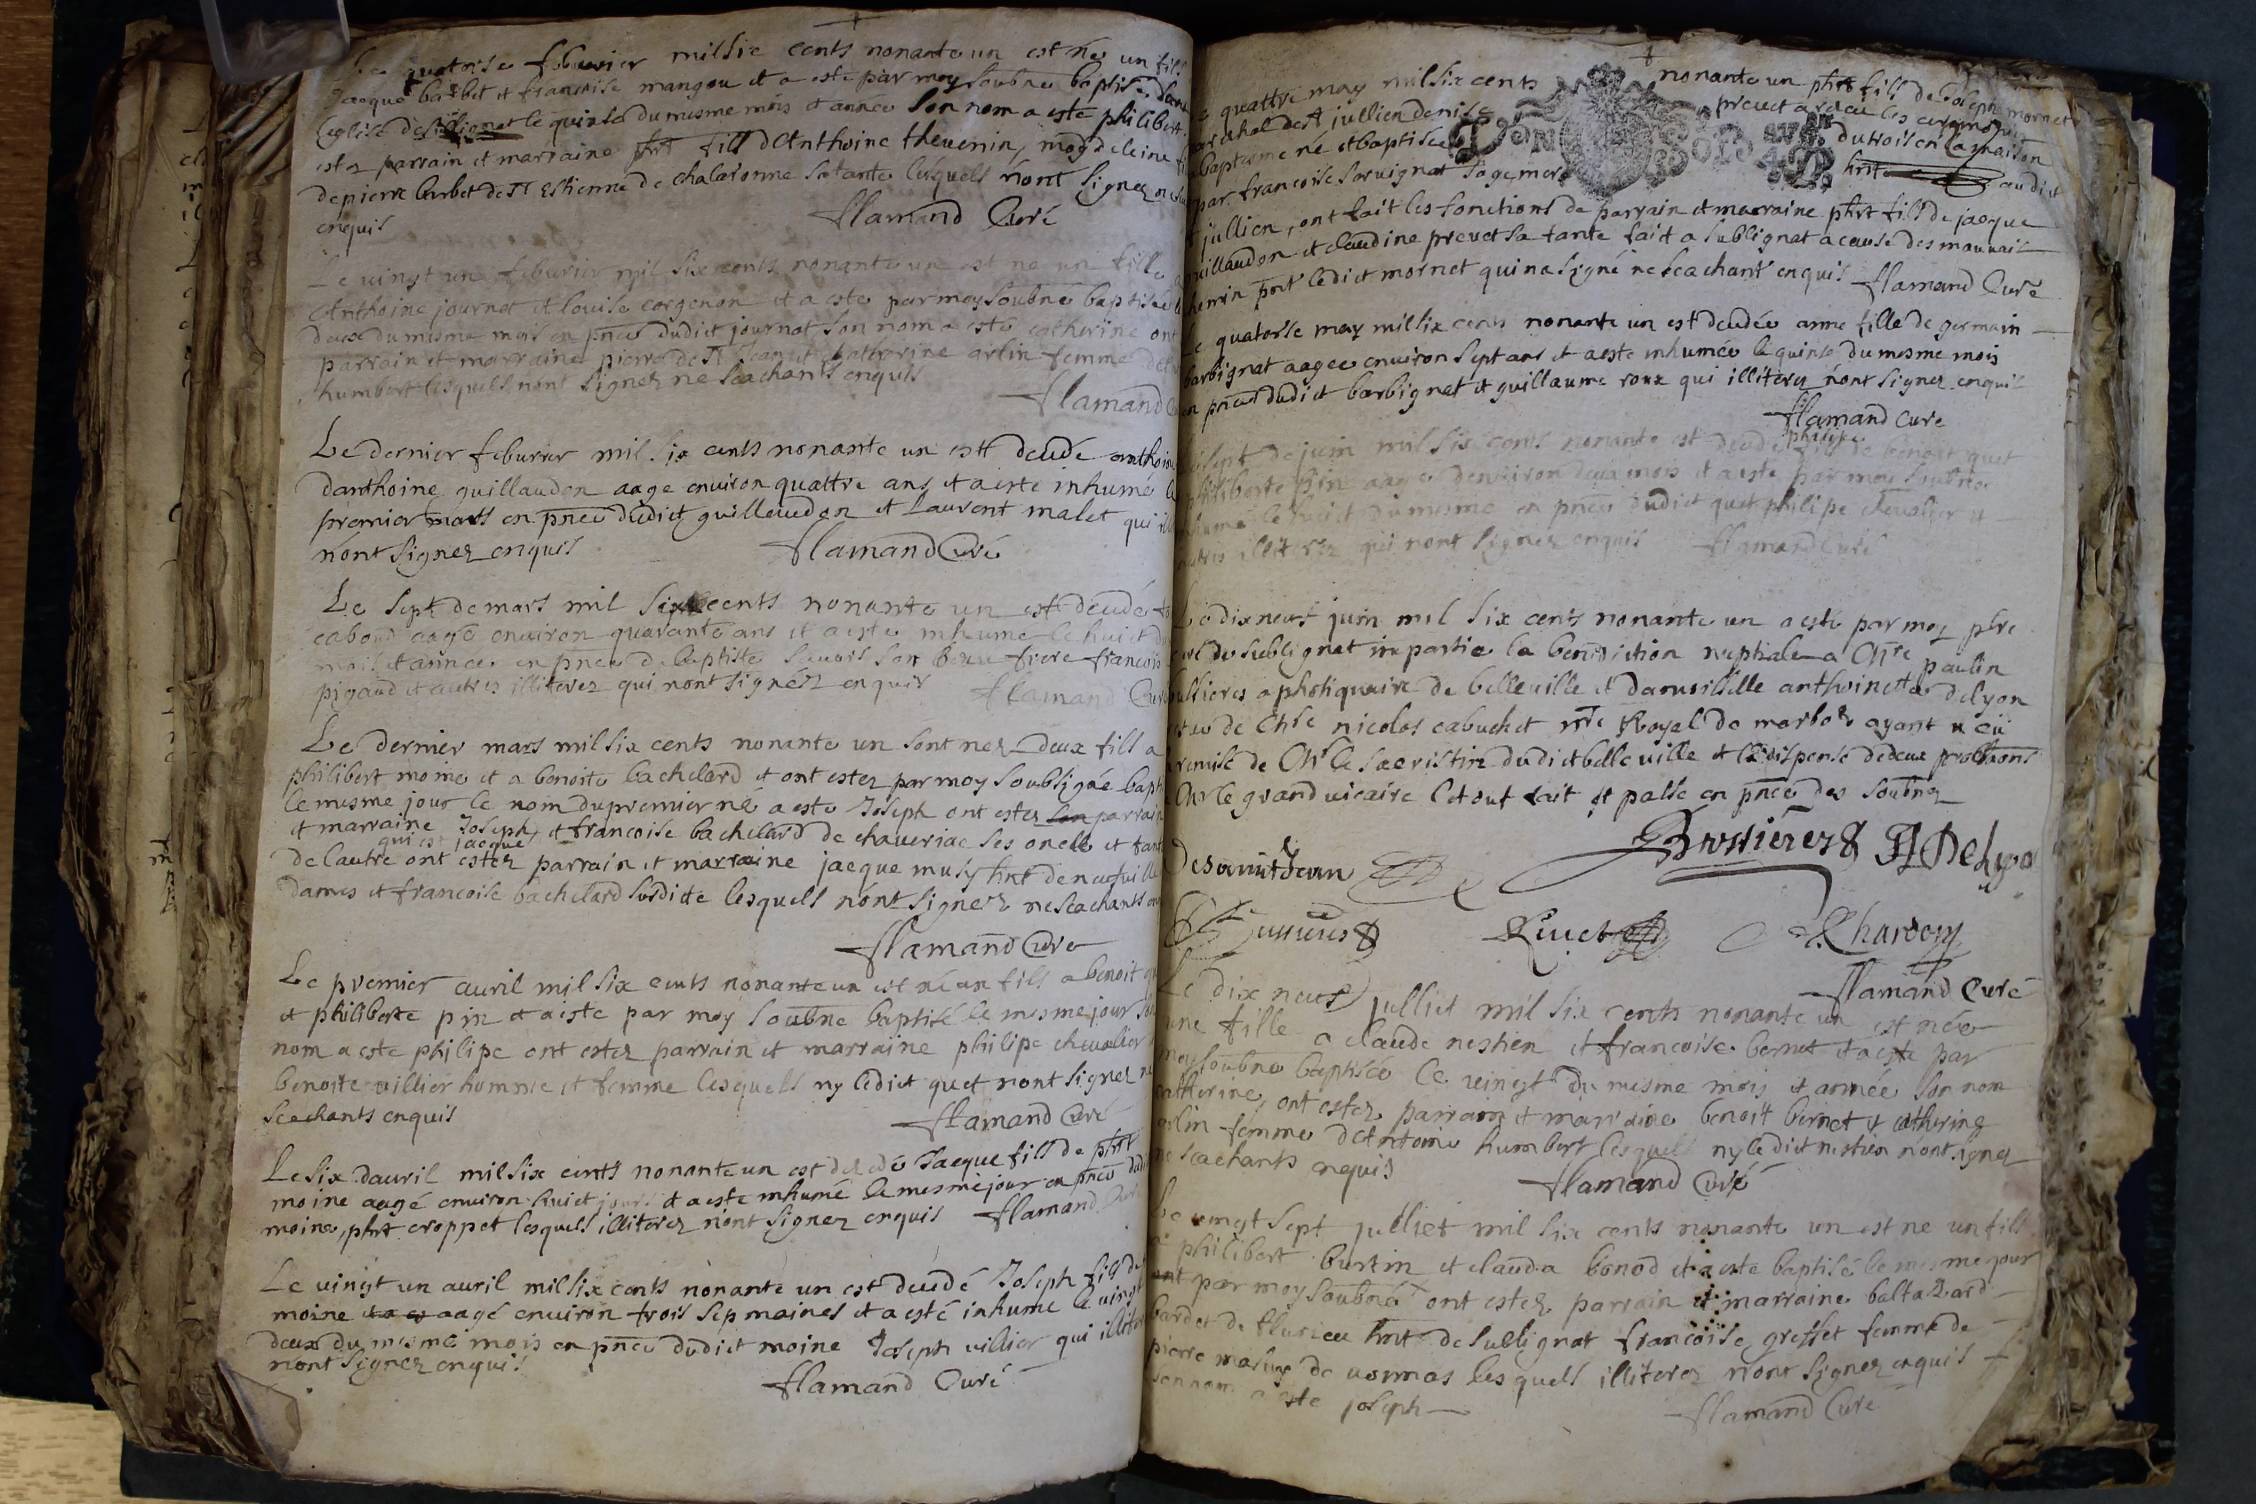 Le quatorse feburier mil six cents nonante un est nez un fils
Jacque barbet et francoise mangou et a este par moy soubné baptisé dans
leglise de sulignat le quinse du mesme mois et année son nom a este philibert
estez parrain et marraine phrt fill dAnthoine thevenin, magdeleine
de pierre barbet de St Estienne de chalaronne sa tante lesquels nont signez
enquis
flamand Curé
Le vingt un feburier mil six cents nonante un est ne un fille
Anthoine journet et louise corgenon et a este par moy soubné baptisée
deux du mesme mois en pnce dudict journet son nom a esté catherine ont
parrain et marraine pierre de St Jean et Catherine arlin femme
humbert lesquels nont signez ne scachants enquis
flamand
Le dernier feburier mil six cents nonante un estt decedé anthoine
danthoine guillaudon aage environ quattre ans et a este inhumé
premier mars en pnce dudict guillaudon et Laurent malet qui
nont signez enquis
flamand Curé
Le sept de mars mil six cents nonante un est decedé
cabond aagé environ quarante ans et a este inhume le huict
mois et année en pnce de baptiste son beau frere francois
pigaud et autres illiterez qui nont signez enquis
flamand Curé
Le dernier mars mil six cents nonante un sont nez deux fils a
philibert moine et a benoite bachelard et ont estez par moy soubsigné
le mesme jour le nom du premier né a este Joseph ont estez parrain
et marraine Joseph et francoise bachelard de chaveriac ses oncle et
qui est jacque
de lautre ont estez parrain et marraine jacque musy hnt de neufville
dames et francoise bachelard susdicte lesquels nont signez ne scachants
flamand Curé
Le premier avril mil six cents nonante un est né un fils a benoit
et philiberte pin et a este par moy soubne baptisé le mesme jour son
nom a este philipe ont estez parrain et marraine philipe chevalier
benoite villier homme et femme lesquels ny ledict quet nont signez ne
scachants enquis
flamand Curé
Le six davril mil six cents nonante un est decedé Jacque fils de phrt
moine aagé environ huict jours et a este inhumé le mesme jour en pnce
moine, phrt croppet lesquels illiterez nont signez enquis
flamand
Le vingt un avril mil six cents nonante un est decedé Joseph fils de
moine aagé environ trois sepmaines et a esté inhume le vingt
deux du mesme mois en pnce dudict moine Joseph villier qui
nont signez enquis
flamand Curé
quattre may mil six cents nonante un phrt fill de Joseph mornet
de St jullien denise prevet a receu les ceremonies
baptesme né et baptisée du trois en la maison
par francoise servignat sage mere audict
St jullien, ont fait les fonctions de parrain et marraine phrt fill de jacque
guillaudon et claudine prevet sa tante fait a sublignat a cause des mauvais
chemin ledict mornet qui na signé ne scachant enquis
flamand Curé
Le quatorse may mil six cents nonante un est decedée anne fille de germain
barbignat aagee environ sept ans et a este inhumée le quinse du mesme mois
en pnce dudict barbignat et guillaume roux qui illiterez nont signez enquis
flamand Curé
sept de juin mil six cents nonante est decedé philipe de benoit quet
philiberte pin aagé denviron deux mois et a este par moy soubné
inhumé le huict du mesme en pnce dudict quet philipe chevalier et
autres illiterez qui nont signez enquis
flamand Curé
Le dix neuf juin mil six cents nonante un a esté par moy pbre
curé de sublignat impartie la benediction nuptiale a paulin
aphotiquaire de belleville et damoiselle anthoinette delyon
de nicolas cabuchet nre Royal de marboz ayant
remise de le sacristin dudict belleville et la dispense de deux
le grand vicaire le tout fait et passé en pnce des soubnez
Bussiéres A Delyon
Desaintjean
Livet
Chardon
flamand Curé
Le dix neuf julliet mil six cents nonante un est née
une fille a claude neshien et francoise bernet et a este par
moy soubne baptisée le veingt du mesme mois et année son nom
catherine, ont estez parrain et marraine benoist bernet et catherine
arlin femme dAntoine humbert lesquels ny ledict nont signez
ne scachants enquis
flamand Curé
Le vingt sept julliet mil six cents nonante un est ne un fils
a philibert burtin et clauda bonod et a este baptisé le mesme jour
par moy soubné ont estez parrain et marraine baltazard
bardet de flurieu hnt de sublignat francoise greffet femme de
pierre de vonnas lesquels illiterez nont signez enquis
son nom a este joseph
flamand Curé